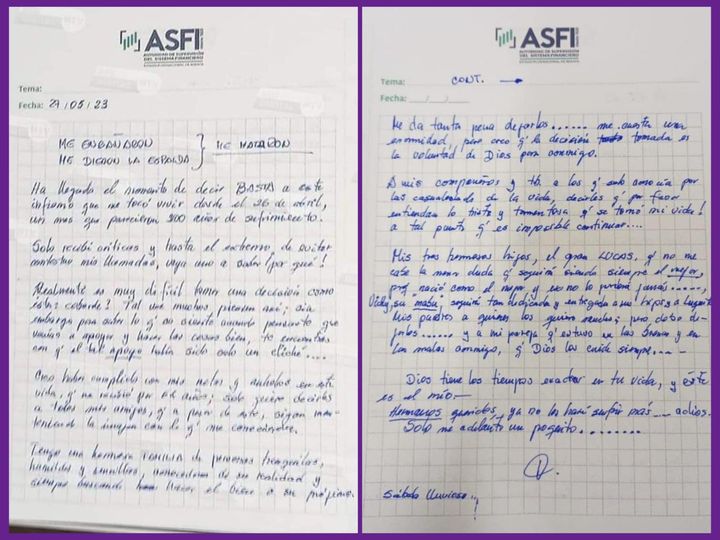 ASFI
AUTORIDAD DE SUPERVISIÓN
DEL SISTEMA FINANCIERO
ESTADO PLURINACIONAL DE BOLIVIA
Tema:
Fecha: 27/05/23
ME ENGAÑARON
ME DIERON LA ESPALDA } ME MATARON
Ha llegado el momento de decir BASTA a este
infierno que me tocó vivir desde el 26 de abril,
un mes que parecieron 200 años de sufrimiento.
Solo recibí críticas y hasta el extremo de evitar
contestar mis llamadas, vaya uno a saber ¡por qué!
Realmente es muy difícil tomar una decisión como
ésta: cobarde! Tal vez muchos piensen así; sin
embargo para saber lo q' no siento cuando pensaste que
te apoyan y hacer las cosas bien, te encuentras
con q' el tal apoyo había sido solo un cliché....
Creo haber cumplido con mis metas y anhelos en esta
vida, q' no resistió por años; solo quiero decirles
a todos mis amigos, q' a pesar de esto, sigan
manteniendo la imagen con la q' me conocieron.
Tengo una hermosa familia de personas tranquilas,
humildes y sencillas, conocedoras de su realidad y
siempre buscando hacer el bien a su prójimo.
ASFI
AUTORIDAD DE SUPERVISIÓN
DEL SISTEMA FINANCIERO
ESTADO PLURINACIONAL DE BOLIVIA
Tema: CONT. →
Fecha: / /
Me da tanta pena dejarlos...... me cuesta una
enormidad, pero creo q' la decisión tomada es
la voluntad de Dios para conmigo.
A mis compañeros y tb. a los q' solo conocía por
las casualidades de la vida, decirles q' por favor
entiendan lo triste y tormentosa q' se tornó mi vida!
a tal punto q' es imposible continuar....
Mis tres hermosos hijos, el gran LUCAS, q' no me
cabe la menor duda q' seguirá siendo siempre el mejor,
pq' nació como el mejor y eso no lo perderá jamás.....,
Vicky, su mamá seguirá tan dedicada y entregada a mis hijos y
Mis puestos a quienes los quiero mucho; pero debo
dejarlos...... y a mi pareja q' estuvo en las buenas y en
las malas conmigo, q' Dios los cuide siempre....
Dios tiene los tiempos exactos en tu vida, y éste
es el mío—
Hermanos queridos, ya no los haré sufrir más... adios.
Solo me adelanto un poquito........
Sábado lluvioso..!